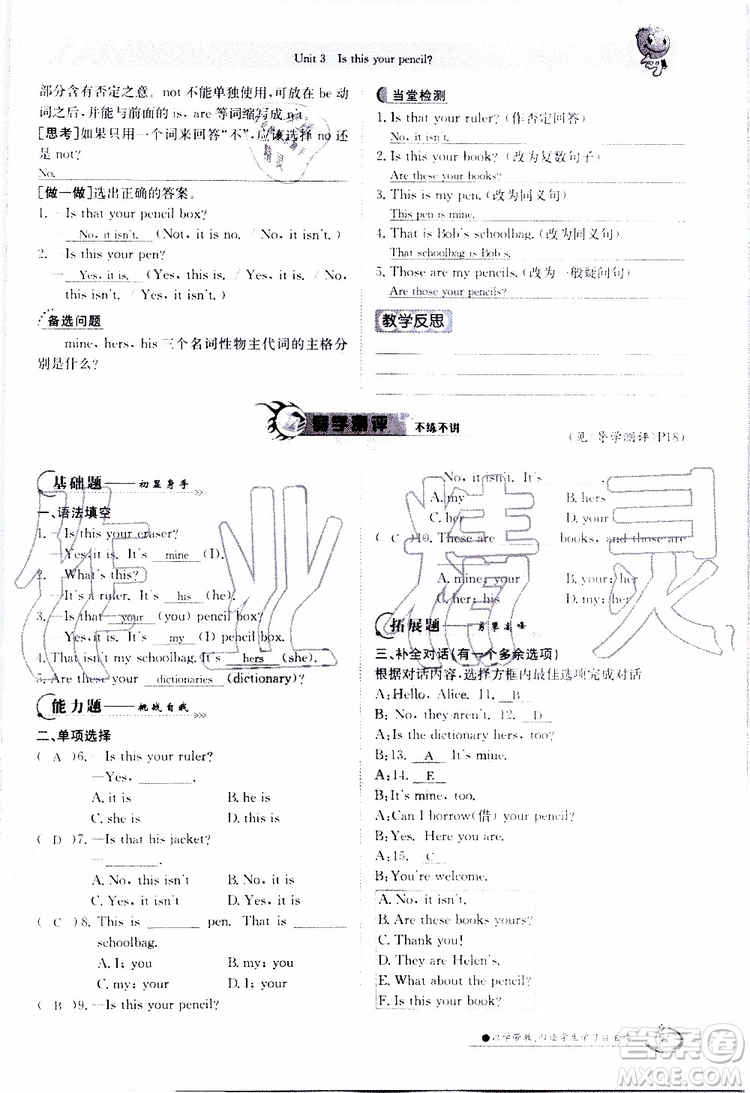 Unit 3 Is this your pencil?
部分含有否定之意。not 不能单独使用，可放在 be 动
词之后，并能与前面的 is, are 等词缩写成 n't。
[思考]如果只用一个词来回答“不”，应该选择 no 还
是 not?
No.
[做一做]选出正确的答案。
1. —Is that your pencil box?
— No, it isn't. (Not, it is. /No, it isn't.)
2. —Is this your pen?
— Yes, it is. (Yes, it is. /Yes, it isn't. /No,
this isn't. /Yes, this is.)
备选问题
mine, hers, his 三个名词性物主代词的主格分
别是什么?
当堂检测
1. Is that your ruler? (作否定回答)
No, it isn't.
2. Is this your book? (改为复数句子)
Are these your books?
3. This is my pen. (改为同义句)
This pen is mine.
4. That is Bob's schoolbag. (改为同义句)
That schoolbag is Bob's.
5. Those are my pencils. (改为一般疑问句)
Are those your pencils?
教学反思
导学测评 不练不讲
(见《导学测评》P18)
基础题——初显身手
一、语法填空
1. —Is this your eraser?
—Yes, it is. It's mine (I).
2. —What's this?
—It's a ruler. It's his (he).
3. —Is that your (you) pencil box?
—Yes, it is. It's my (I) pencil box.
4. That isn't my schoolbag. It's hers (she).
5. These are your dictionaries (dictionary).
能力题——挑战自我
二、单项选择
( A )6. —Is this your ruler?
—Yes, ______.
A. it is B. he is
C. she is D. this is
( D )7. —Is that his jacket?
—______.
A. No, this isn't B. Yes, this is
C. No, that isn't D. No, it isn't
( C )8. This is ______ pen. That is ______
schoolbag.
A. I; you B. my; you
C. my; your D. I; your
( B )9. —Is this your pencil?
—No, it isn't. It's ______.
A. my B. hers
C. her D. he
( C )10. These are ______ books, and those are
______.
A. mine; your B. my; your
拓展题——勇攀高峰
三、补全对话(有一个多余选项)
根据对话内容，选择方框内最佳选项完成对话
A: Hello, Alice. 11. B
B: No, they aren't. 12. D
A: Is the dictionary hers, too?
B: 13. A It's mine.
A: 14. E
B: It's mine, too.
A: Can I borrow(借) your pencil?
B: Yes. Here you are.
A: 15. C
B: You're welcome.
A. No, it isn't.
B. Are these books yours?
C. Thank you!
D. They are Helen's.
E. What about the pencil?
F. Is this your book?
作业精灵